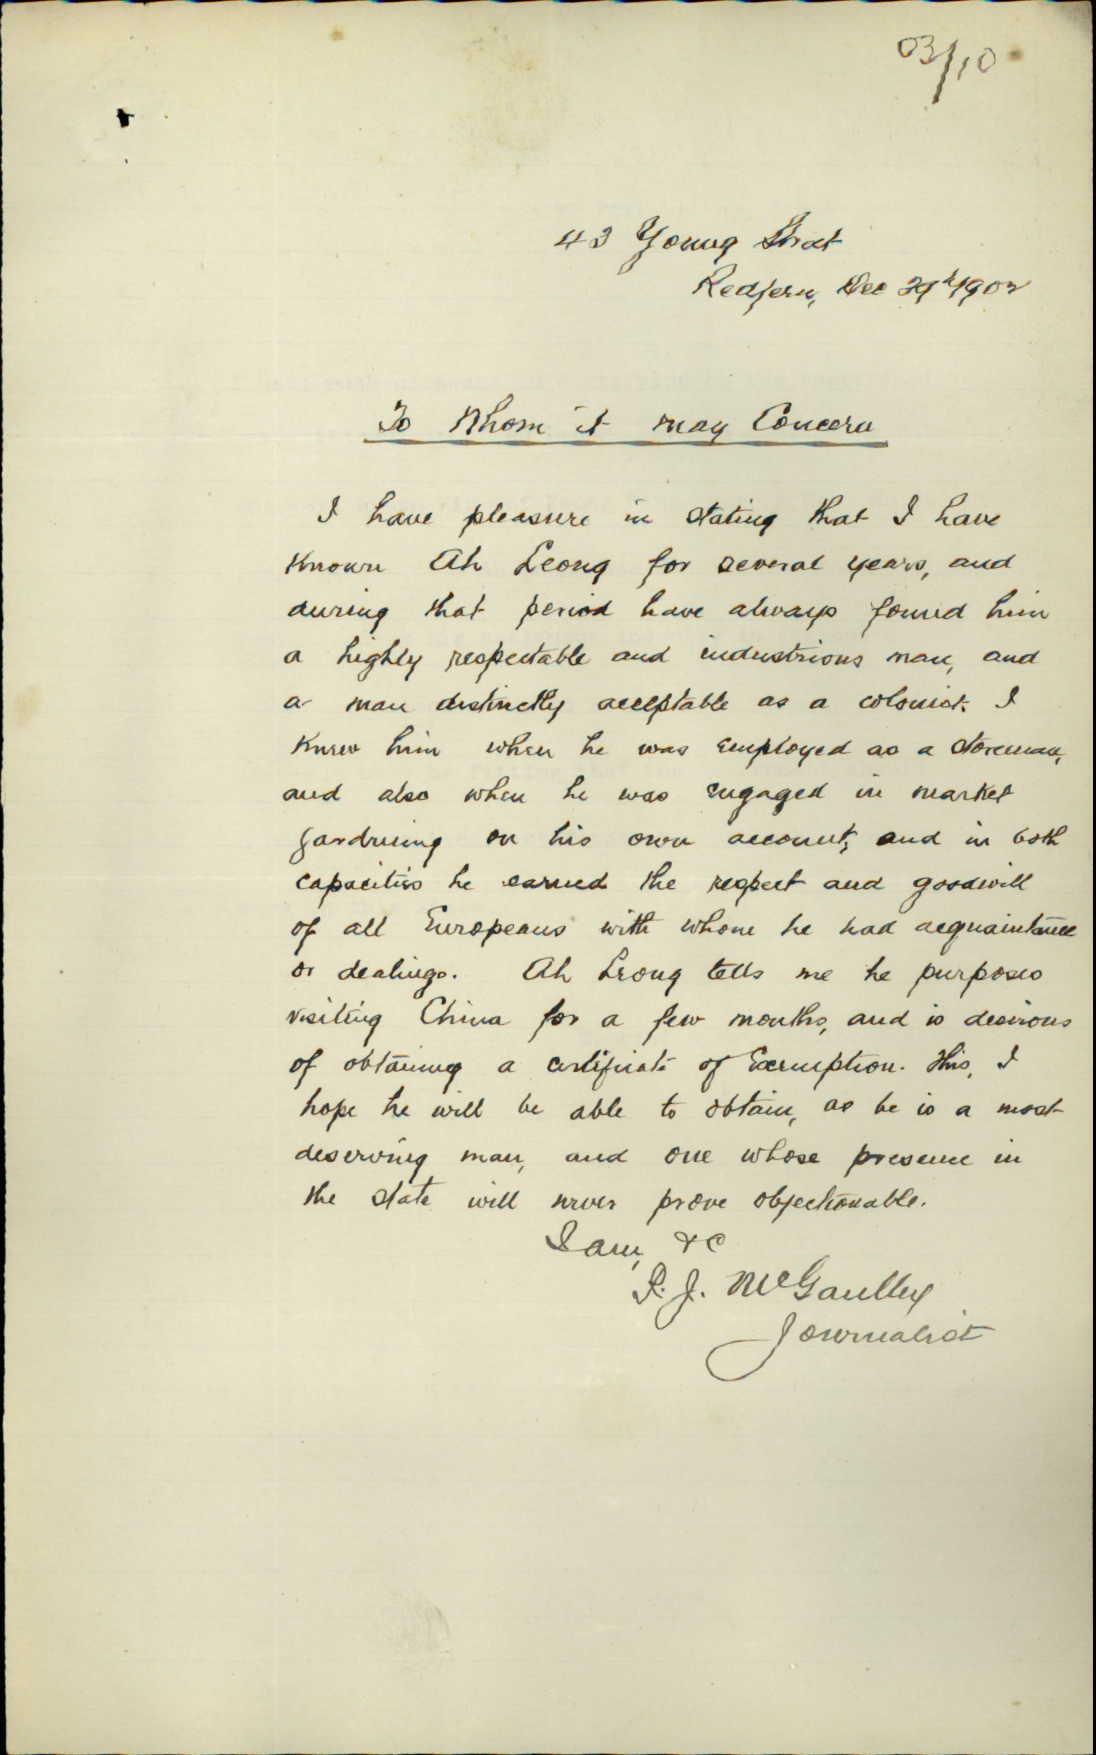 03/10
43 Young Street
Redfern, Dec 29th 1902
To Whom it may Concern
I have pleasure in stating that I have
known Ah Leong for several years, and
during that period have always found him
a highly respectable and industrious man, and
a man distinctly acceptable as a colonist. I
knew him when he was employed as a storeman,
and also when he was engaged in market
gardening on his own account, and in both
capacities he earned the respect and goodwill
of all Europeans with whom he had acquaintance
or dealings. Ah Leong tells me he purposes
visiting China for a few months, and is desirous
of obtaining a certificate of Exemption. This, I
hope he will be able to obtain, as he is a most
deserving man, and one whose presence in
the state will never prove objectionable.
I am, &c
P. J. McGaulley
Journalist